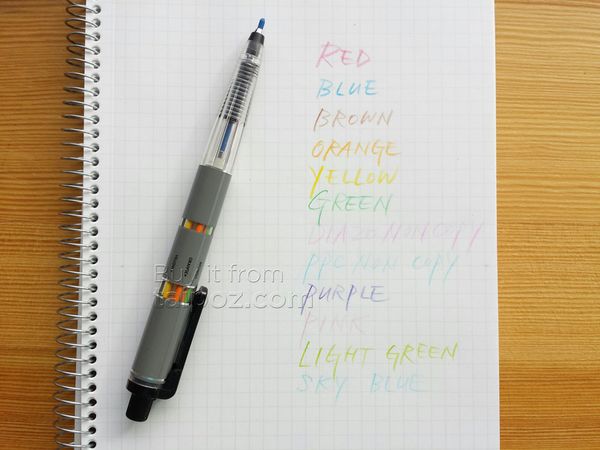 RED
BLUE
BROWN
ORANGE
YELLOW
GREEN
DIAZO NON COPY
PPC NON COPY
PURPLE
PINK
LIGHT GREEN
SKY BLUE
Buy it from